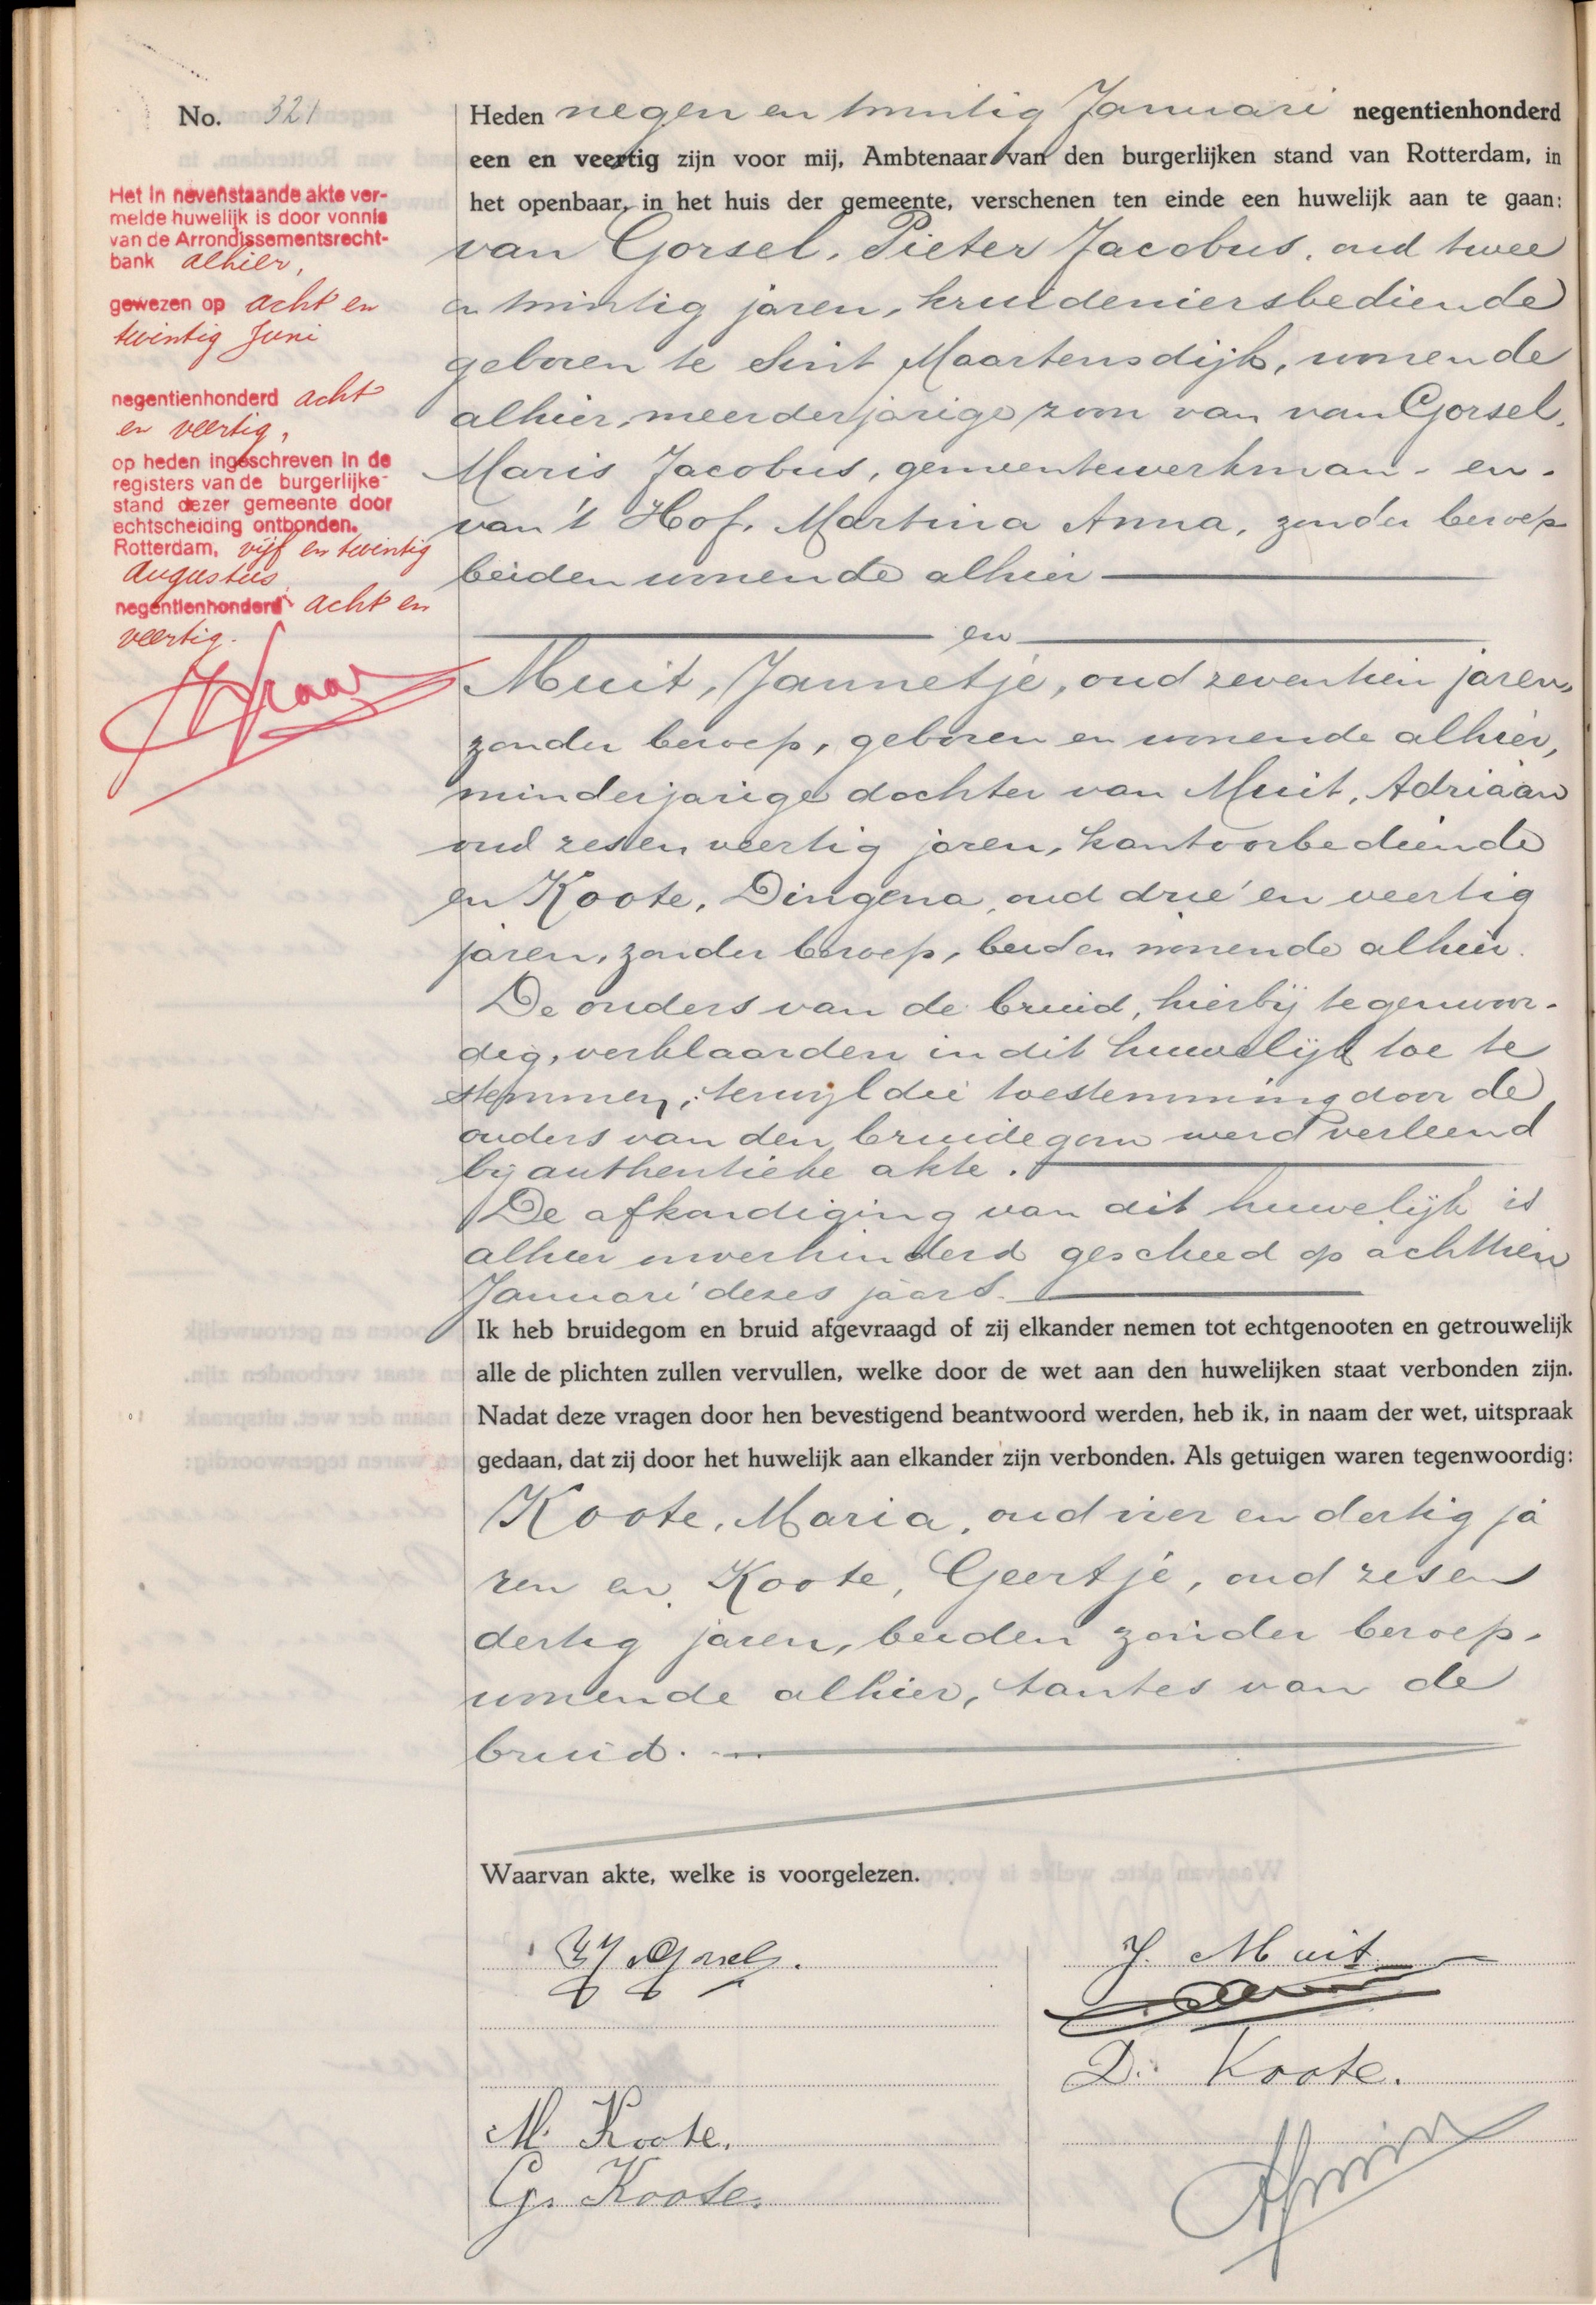 No. 321
Het in nevenstaande akte ver-
melde huwelijk is door vonnis
van de Arrondissementsrecht-
bank alhier,
gewezen op acht en
twintig Juni
negentienhonderd acht
en veertig,
op heden ingeschreven in de
registers van de burgerlijke-
stand dezer gemeente door
echtscheiding ontbonden.
Rotterdam, vijf en twintig
Augustus
negentienhonderd acht en
veertig.
Heden negen en twintig Januari negentienhonderd
een en veertig zijn voor mij, Ambtenaar van den burgerlijken stand van Rotterdam, in
het openbaar, in het huis der gemeente, verschenen ten einde een huwelijk aan te gaan:
van Gorsel, Pieter Jacobus, oud twee
en twintig jaren, kruideniersbediende
geboren te Sint Maartensdijk, wonende
alhier, meerderjarige zoon van van Gorsel,
Maris Jacobus, gemeentewerkman - en -
van 't Hof, Martina Anna, zonder beroep
beiden wonende alhier
en
Muit, Jannetje, oud zeventien jaren,
zonder beroep, geboren en wonende alhier,
minderjarige dochter van Muit, Adriaan
oud zes en veertig jaren, kantoorbediende
en Koote, Dingena, oud drie en veertig
jaren, zonder beroep, beiden wonende alhier.
De ouders van de bruid, hierbij tegenwoor-
dig, verklaarden in dit huwelijk toe te
stemmen, terwijl die toestemming door de
ouders van den bruidegom werd verleend
bij authentieke akte.
De afkondiging van dit huwelijk is
alhier onverhinderd geschied op achttien
Januari dezes jaars.
Ik heb bruidegom en bruid afgevraagd of zij elkander nemen tot echtgenooten en getrouwelijk
alle de plichten zullen vervullen, welke door de wet aan den huwelijken staat verbonden zijn.
Nadat deze vragen door hen bevestigend beantwoord werden, heb ik, in naam der wet, uitspraak
gedaan, dat zij door het huwelijk aan elkander zijn verbonden. Als getuigen waren tegenwoordig:
Koote, Maria, oud vier en dertig ja
ren en Koote, Geertje, oud zes en
dertig jaren, beiden zonder beroep,
wonende alhier, tantes van de
bruid.
Waarvan akte, welke is voorgelezen.
J. Muit
D. Koote.
M. Koote.
G. Koote.